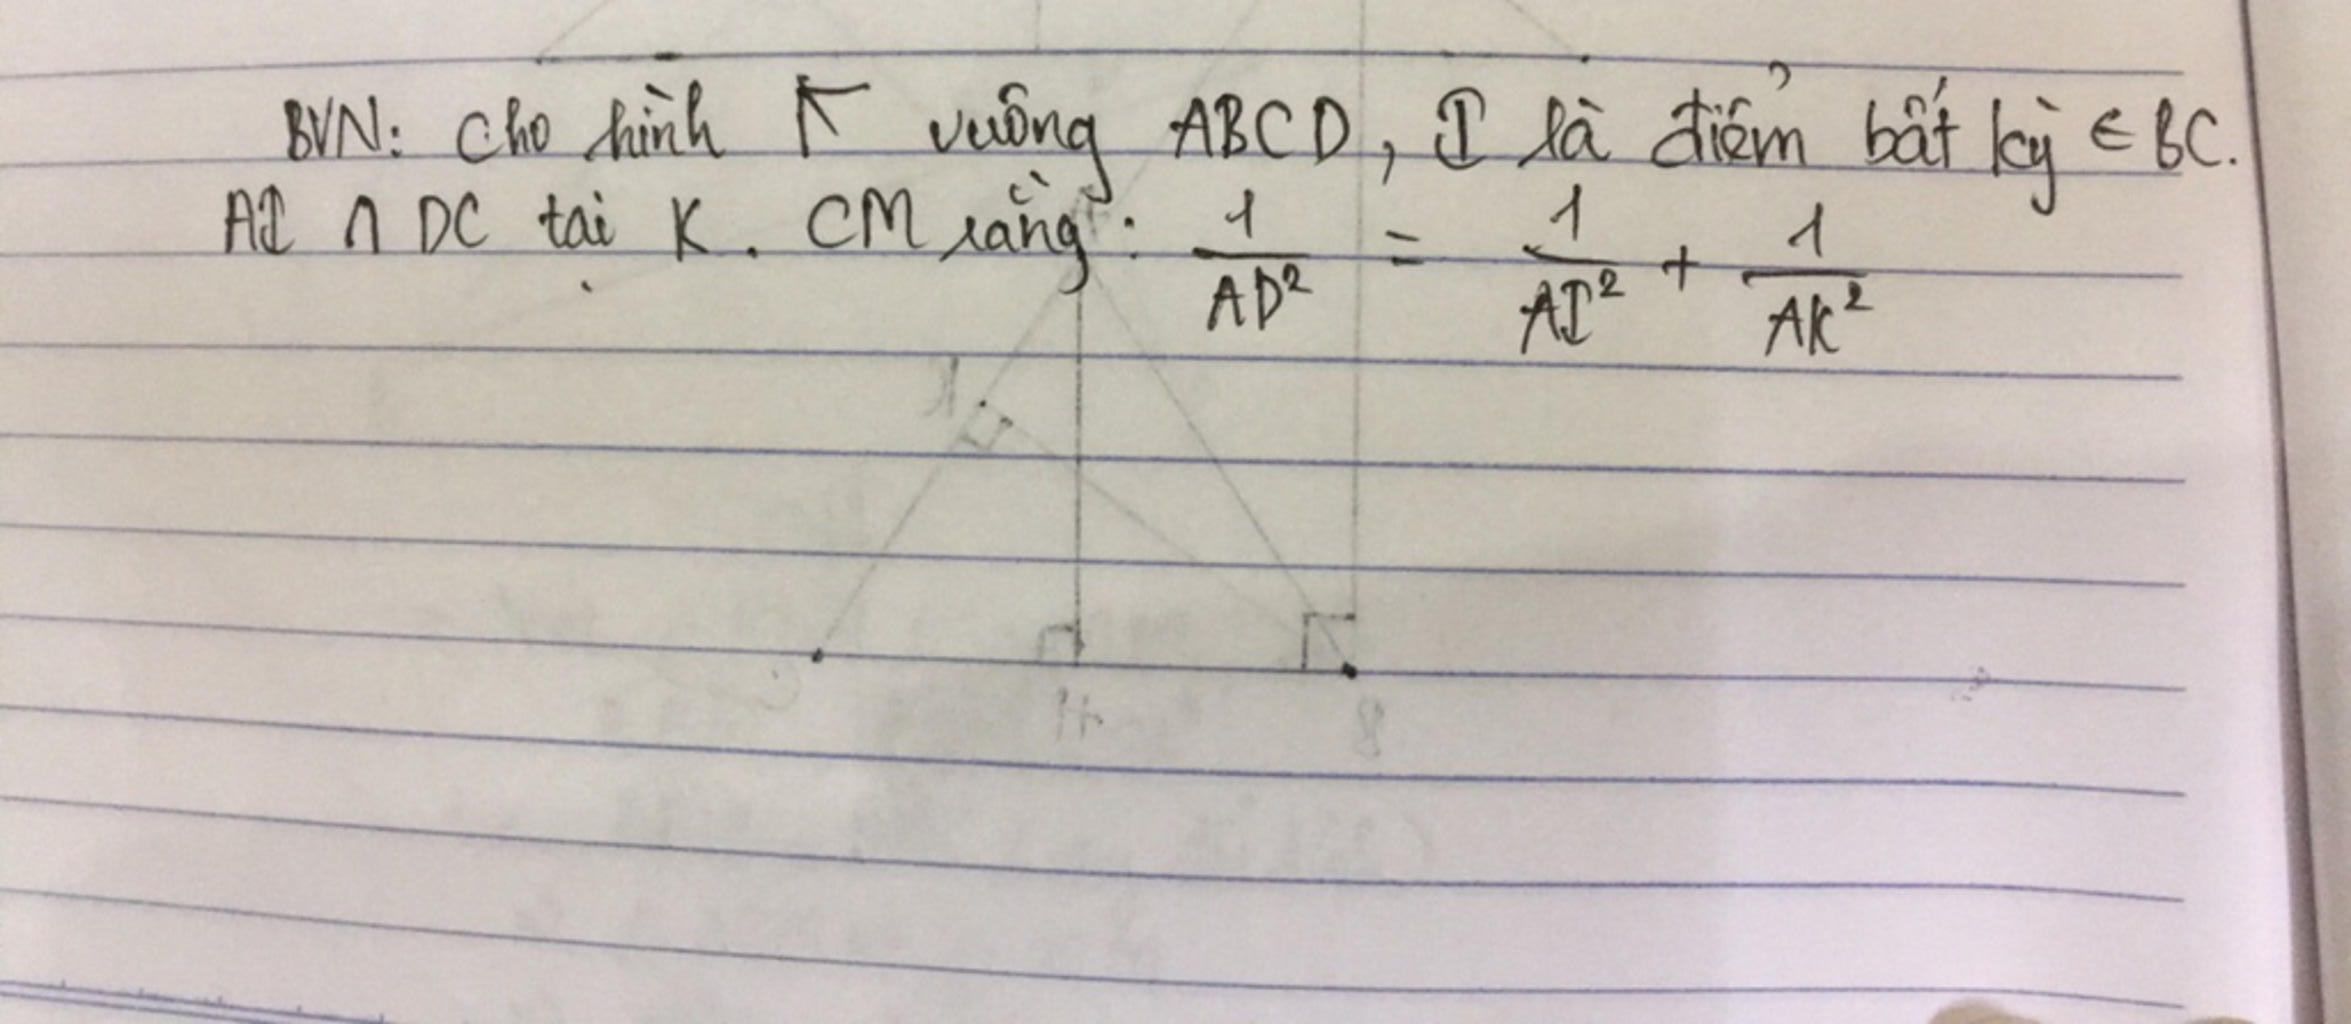 BVN: Cho hình vuông ABCD, I là điểm bất kỳ ∈ BC.
AI ∩ DC tại K. CM rằng: 1/AD² = 1/AI² + 1/AK²
K
H B